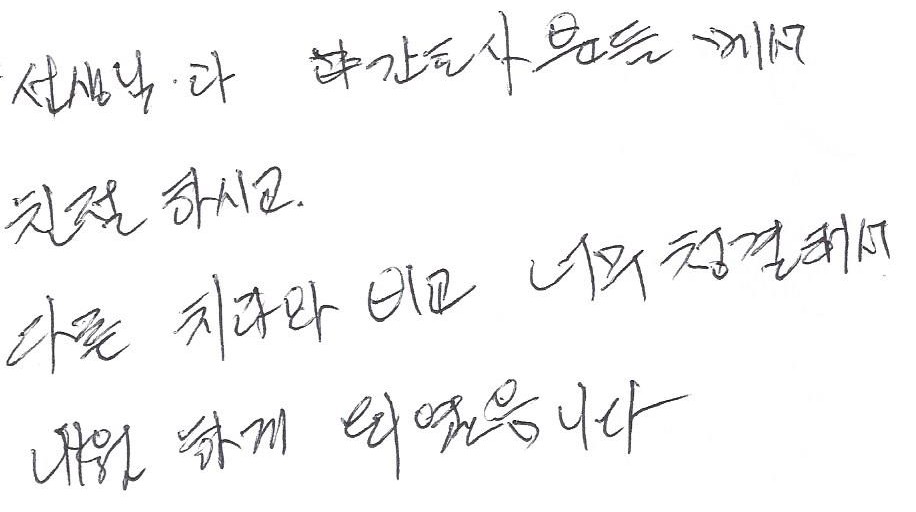 선생님·과 간호사 분들께서
친절 하시고.
다른 치과와 비교 너무 청결해서
내원 하게 되었읍니다